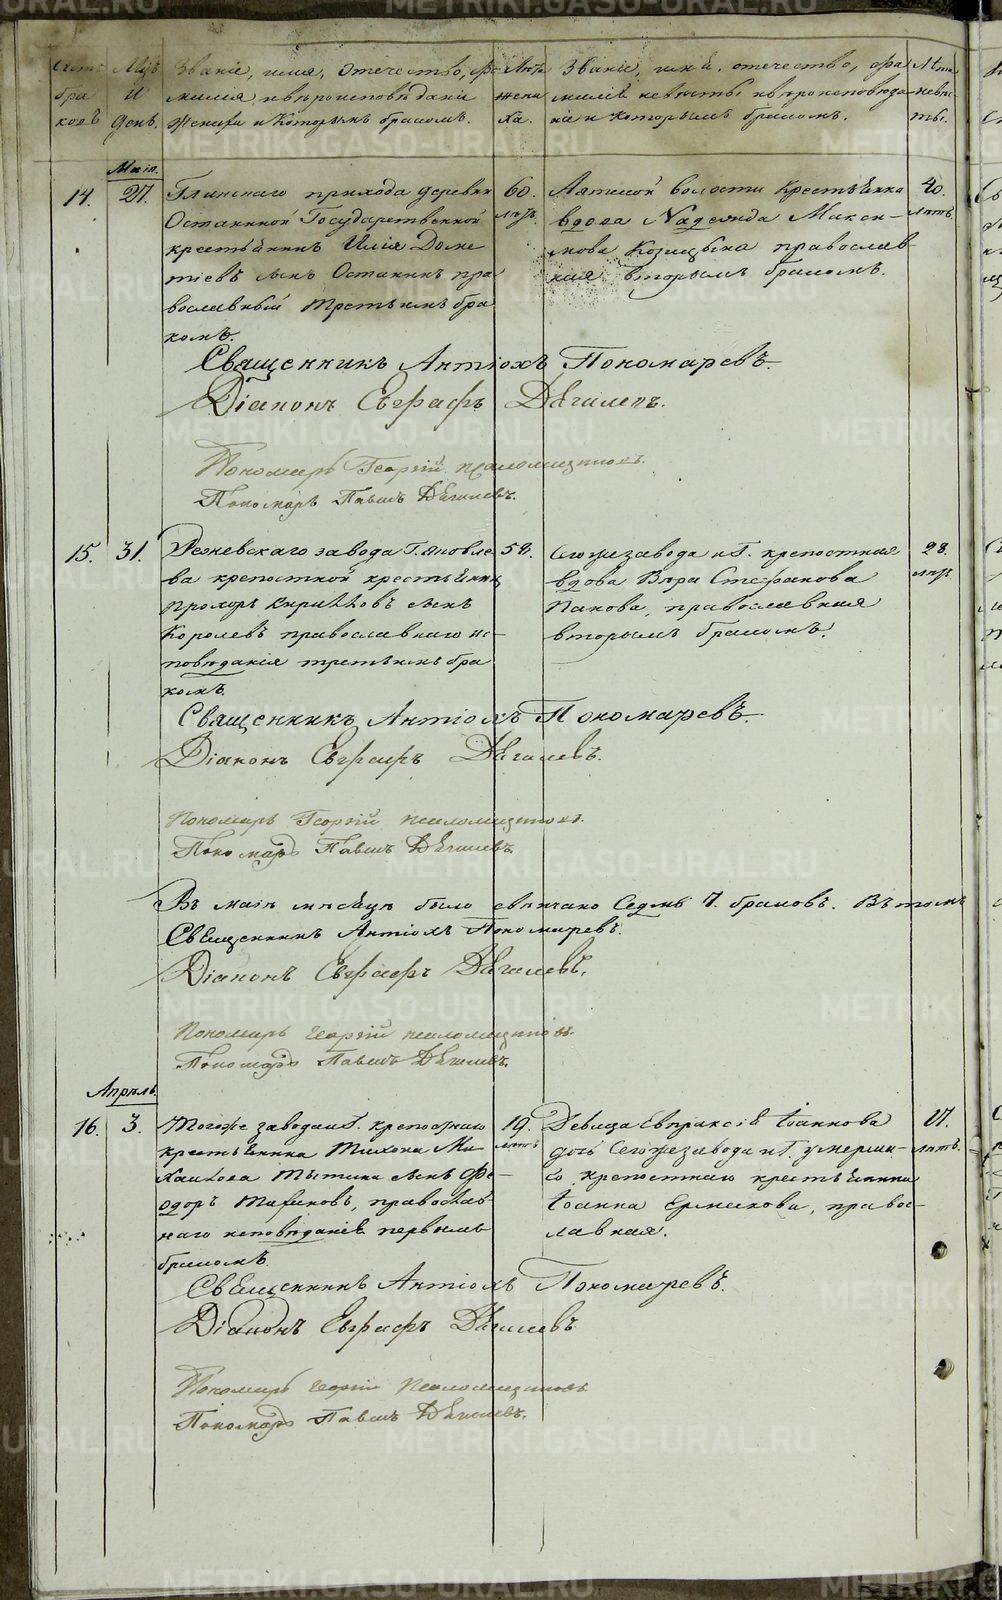 Счетъ бра ковъ
Мѣс. И День.
Званіе, имя, Отечество, фа милія и вѣроисповѣданіе Жениха и Которымъ бракомъ.
Лѣта жени ха.
Званіе, имя, отечество, фа милія невѣсты и вѣроисповѣда ніе и которымъ бракомъ.
Лѣта невѣс ты.
Маія.
14. 27.
Глинскаго прихода деревни
Останиной Государственной
крестьянинъ Илія Доме
тіевъ сынъ Останинъ пра
вославный третьимъ бра
комъ.
60. лѣтъ.
волости крестьянка
вдова Надежда Макси-
мова Козицына православ-
ная вторымъ бракомъ.
40. лѣтъ
Священникъ Антіохъ Пономаревъ.
Діаконъ Евграфъ Дягилевъ.
Пономарь Георгій Псаломщиковъ.
Пономарь Павелъ Дягилевъ.
15. 31.
Режевскаго завода Г. Яковле-
ва крепостной крестьянинъ
Прохоръ Кириловъ сынъ
Королевъ православнаго ис-
повѣданія третьимъ бра
комъ.
58.
Сегожезавода и Г. крепостная
вдова Вѣра Стефанова
Панова, православная
вторымъ бракомъ.
28. лѣтъ.
Священникъ Антіохъ Пономаревъ.
Діаконъ Евграфъ Дягилевъ.
Пономарь Георгій Псаломщиковъ.
Пономарь Павелъ Дягилевъ.
Въ маіѣ мѣсяцѣ было свѣнчано Седмь 7. браковъ. Въ томъ
Священникъ Антіохъ Пономаревъ.
Діаконъ Евграфъ Дягилевъ.
Пономарь Георгій Псаломщиковъ.
Пономарь Павелъ Дягилевъ.
Апрѣль.
16. 3.
Тогоже завода и Г. крепостнаго
крестьянина Тихона Ми
хайлова сынъ Фе-
одоръ православ-
наго исповѣданія первымъ
бракомъ.
19. лѣтъ
Девица Евпраксія Іоаннова
дочь Сегожезавода и Г. умерша-
го крепостнаго крестьянина
Іоанна Ермакова, правос-
лавная.
17. лѣтъ.
Священникъ Антіохъ Пономаревъ.
Діаконъ Евграфъ Дягилевъ
Пономарь Георгій Псаломщиковъ
Пономарь Павелъ Дягилевъ.
METRIKI.GASO-URAL.RU